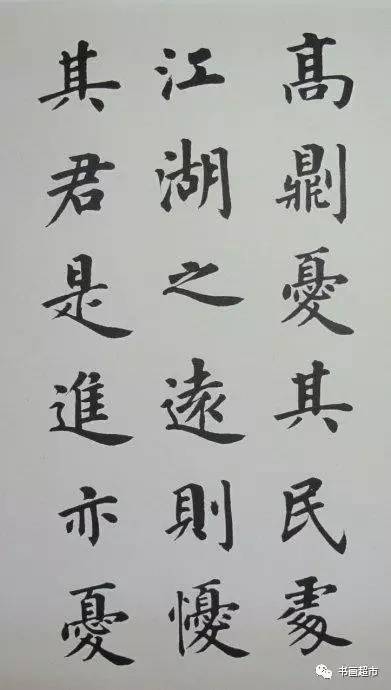 高𠟻憂其民處
江湖之遠則懮
其君是進亦憂
书画超市